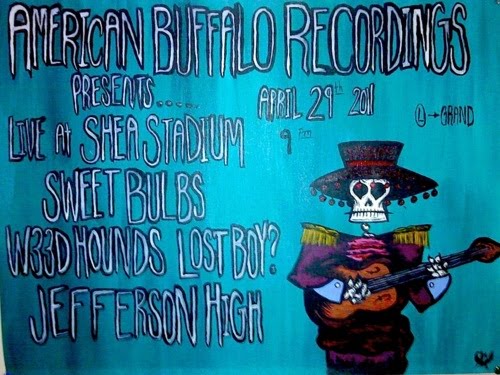 AMERICAN BUFFALO RECORDINGS
PRESENTS.....
APRIL 29th 2011
9 Pm
L → GRAND
LIVE AT SHEA STADIUM
SWEET BULBS
W33D HOUNDS LOST BOY?
JEFFERSON HIGH